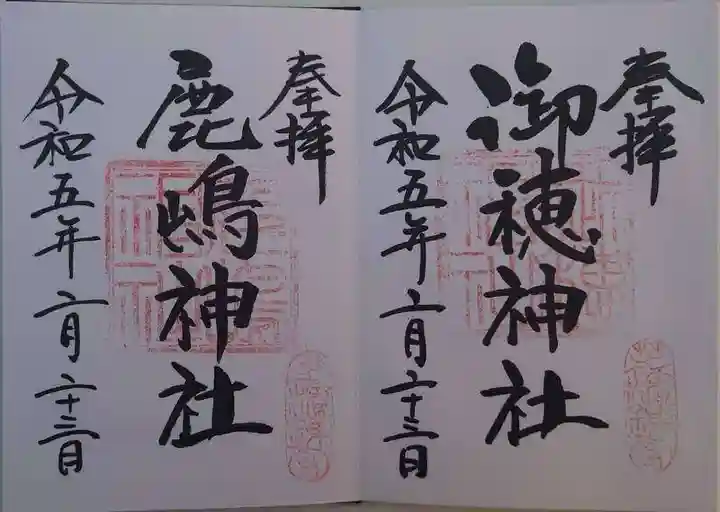 奉拝
御穂神社
令和五年二月二十三日
奉拝
鹿嶋神社
令和五年二月二十三日